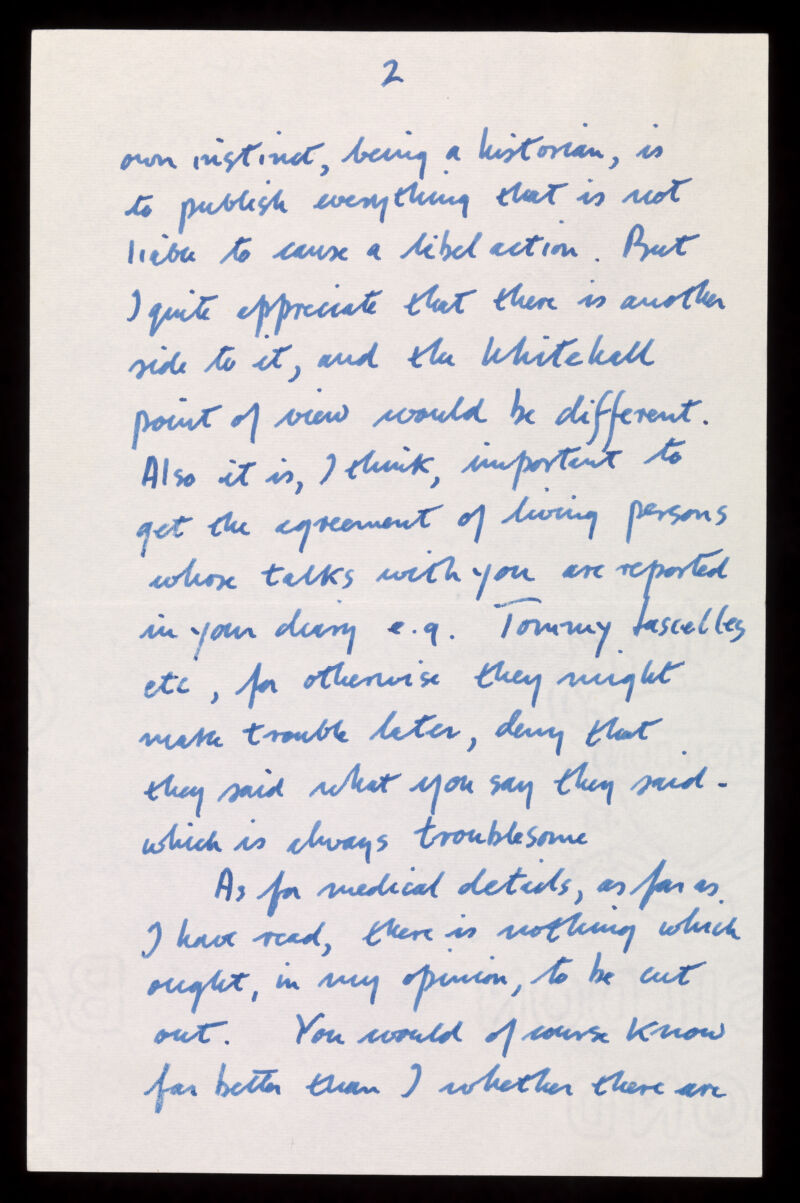 2
own instinct, being a historian, is
to publish everything that is not
liable to cause a libel action. But
I quite appreciate that there is another
side to it, and the Whitehall
point of view would be different.
Also it is, I think, important to
get the agreement of living persons
whose talks with you are reported
in your diary e.g. Tommy Lascelles
etc, for otherwise they might
make trouble later, deny that
they said what you say they said -
which is always troublesome
As for medical details, as far as
I have read, there is nothing which
ought, in my opinion, to be cut
out. You would of course know
far better than I whether there are